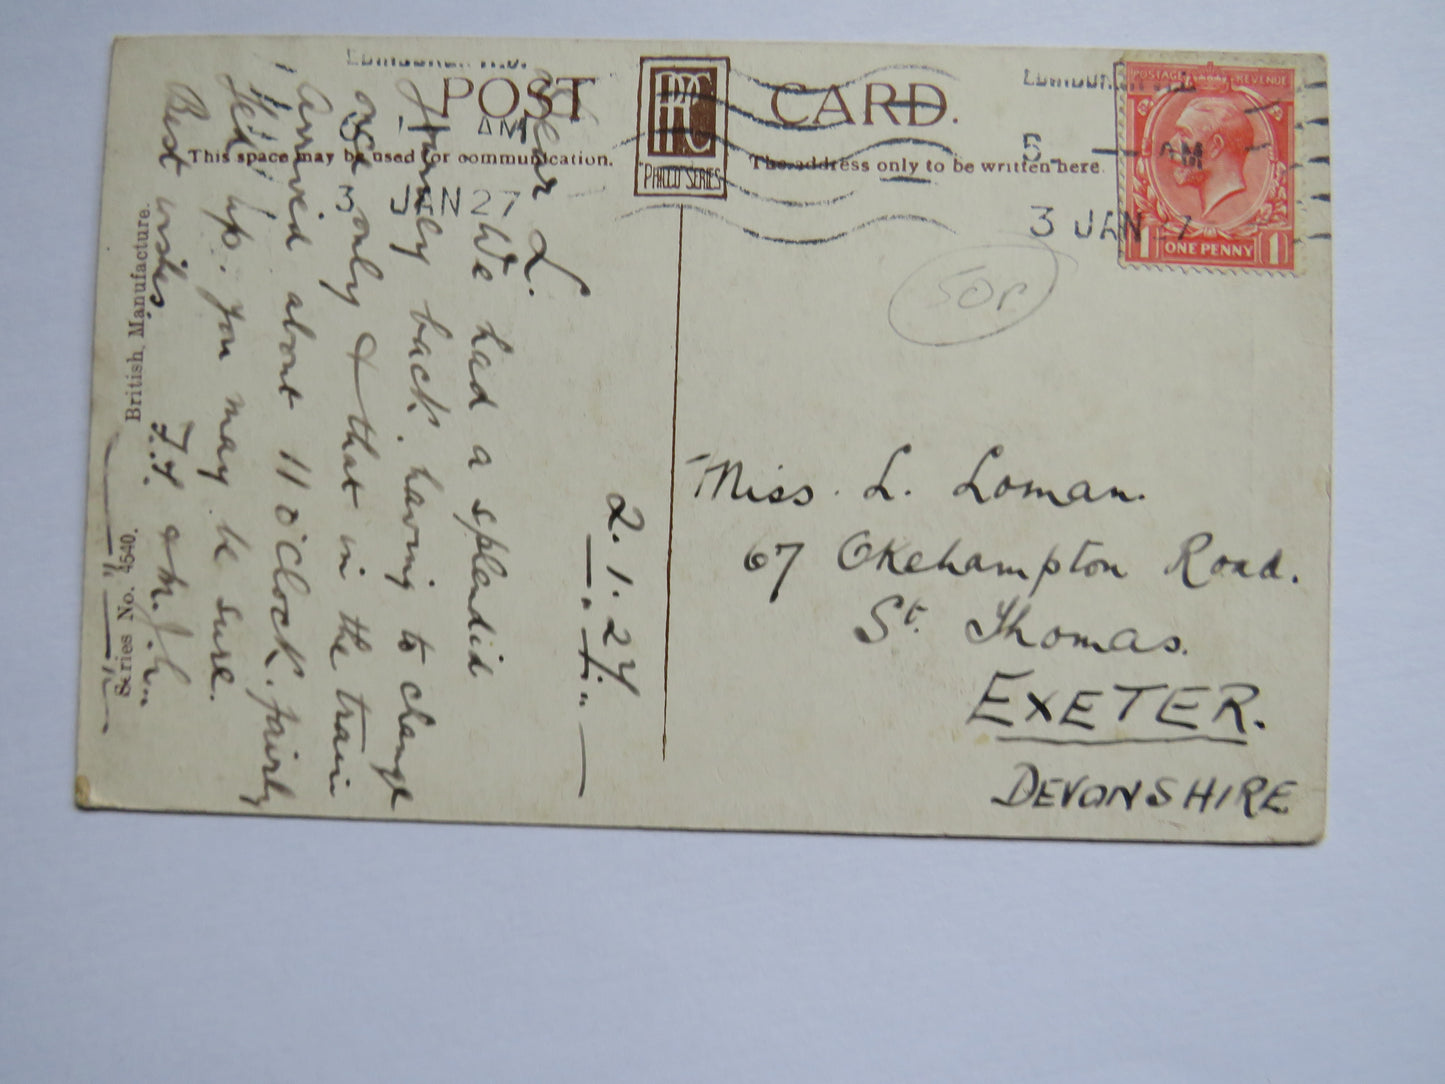 POST CARD.
PPC
"PHILCO" SERIES
This space may be used for communication.
The address only to be written here.
POSTAGE REVENUE
ONE PENNY
1 1
3 JAN 27
AM
5 AM
3 JAN 7
50p
2.1.27
Dear L.
We had a splendid
journey back. having to change
once only & that in the train
Arrived about 11 o'clock. fairly
fed up. you may be sure.
Best wishes.
Miss. L. Loman.
67 Okehampton Road.
St. Thomas.
EXETER.
DEVONSHIRE
British Manufacture.
Series No. 4540.